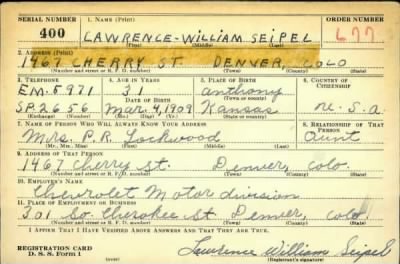 SERIAL NUMBER 1. NAME (Print) ORDER NUMBER
400 LAWRENCE-WILLIAM SEIPEL L77
(First) (Middle) (Last)
2. ADDRESS (Print)
1467 CHERRY ST. DENVER, COLO
(Number and street or R. F. D. number) (Town) (County) (State)
3. TELEPHONE 4. AGE IN YEARS 5. PLACE OF BIRTH 6. COUNTRY OF CITIZENSHIP
EM-5971 31 Anthony
DATE OF BIRTH (Town or county)
SP. 2656 Mar. 4, 1909 Kansas U. S. A
(Mo.) (Day) (Yr.) (State or country)
7. NAME OF PERSON WHO WILL ALWAYS KNOW YOUR ADDRESS 8. RELATIONSHIP OF THAT PERSON
Mrs. P. R. Lockwood Aunt
(Mr., Mrs., Miss) (First) (Middle) (Last)
9. ADDRESS OF THAT PERSON
1467 Cherry St. Denver, Colo.
(Number and street or R. F. D. number) (Town) (County) (State)
10. EMPLOYER'S NAME
Chevrolet Motor division
11. PLACE OF EMPLOYMENT OR BUSINESS
301 So. Cherokee St Denver, Colo
(Number and street or R. F. D. number) (Town) (County) (State)
I AFFIRM THAT I HAVE VERIFIED ABOVE ANSWERS AND THAT THEY ARE TRUE.
REGISTRATION CARD
D. S. S. Form 1 Lawrence William Seipel
(Registrant's signature)